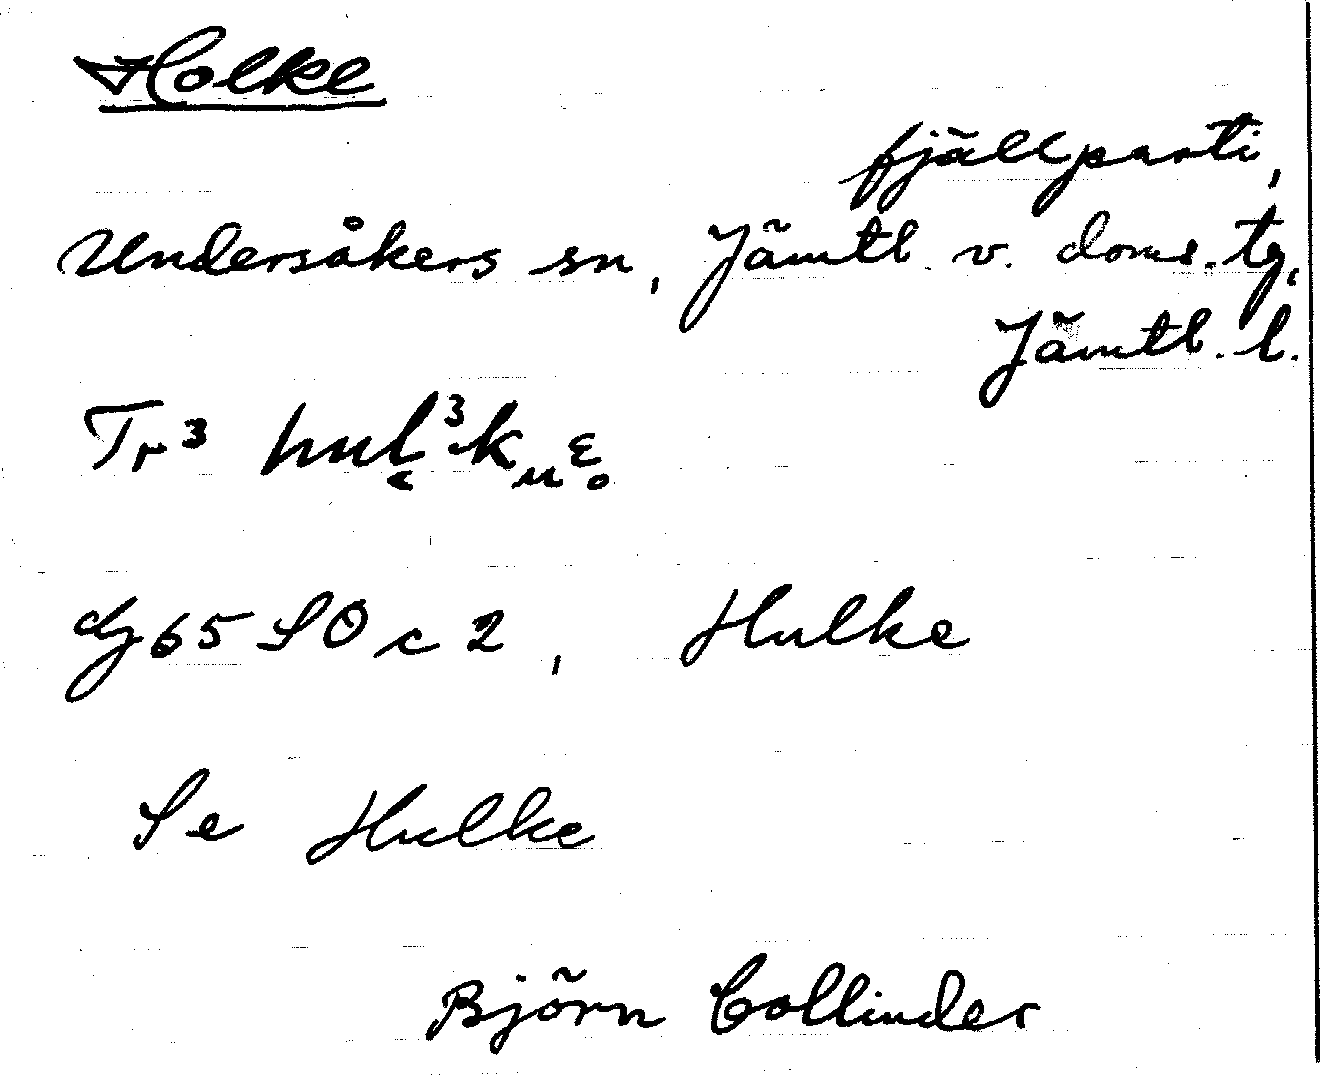 Holke
fjällparti,
Undersåkers sn, Jämtl. v. doms. tg,
Jämtl. l.
Tr³
65 SO c 2, Hulke
Se Hulke
Björn Collinder